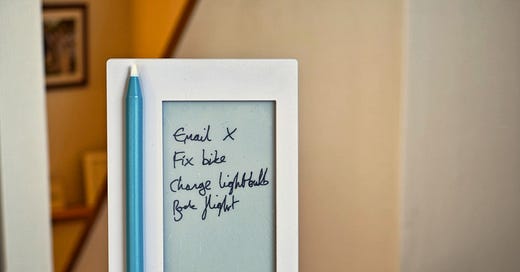 Email X
Fix bike
Change lightbulb
Book flight